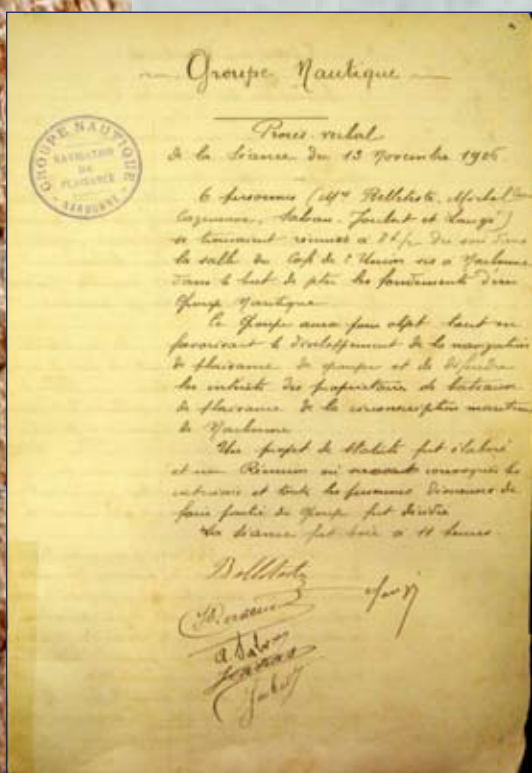 Groupe Nautique
GROUPE NAUTIQUE
NAVIGATION
DE
PLAISANCE
NARBONNE
Procès-verbal
de la Séance du 13 Novembre 1906
6 personnes (Mrs
Cazeneuve, Salvan, Joubert et Laugé)
se trouvaient réunies à du soir dans
la salle du Café de l'Union sis à Narbonne
dans le but de jeter les fondements d'un
Groupe Nautique
Ce Groupe aura pour objet tout en
favorisant le développement de la navigation
de plaisance de grouper et de défendre
les intérêts des propriétaires de bateaux
de plaisance de la circonscription maritime
de Narbonne
Un projet de Statuts fut élaboré
et une Réunion où seraient convoqués les
intéressés et toutes les personnes désireuses de
faire partie du Groupe fut décidée
La séance fut levée à 11 heures.